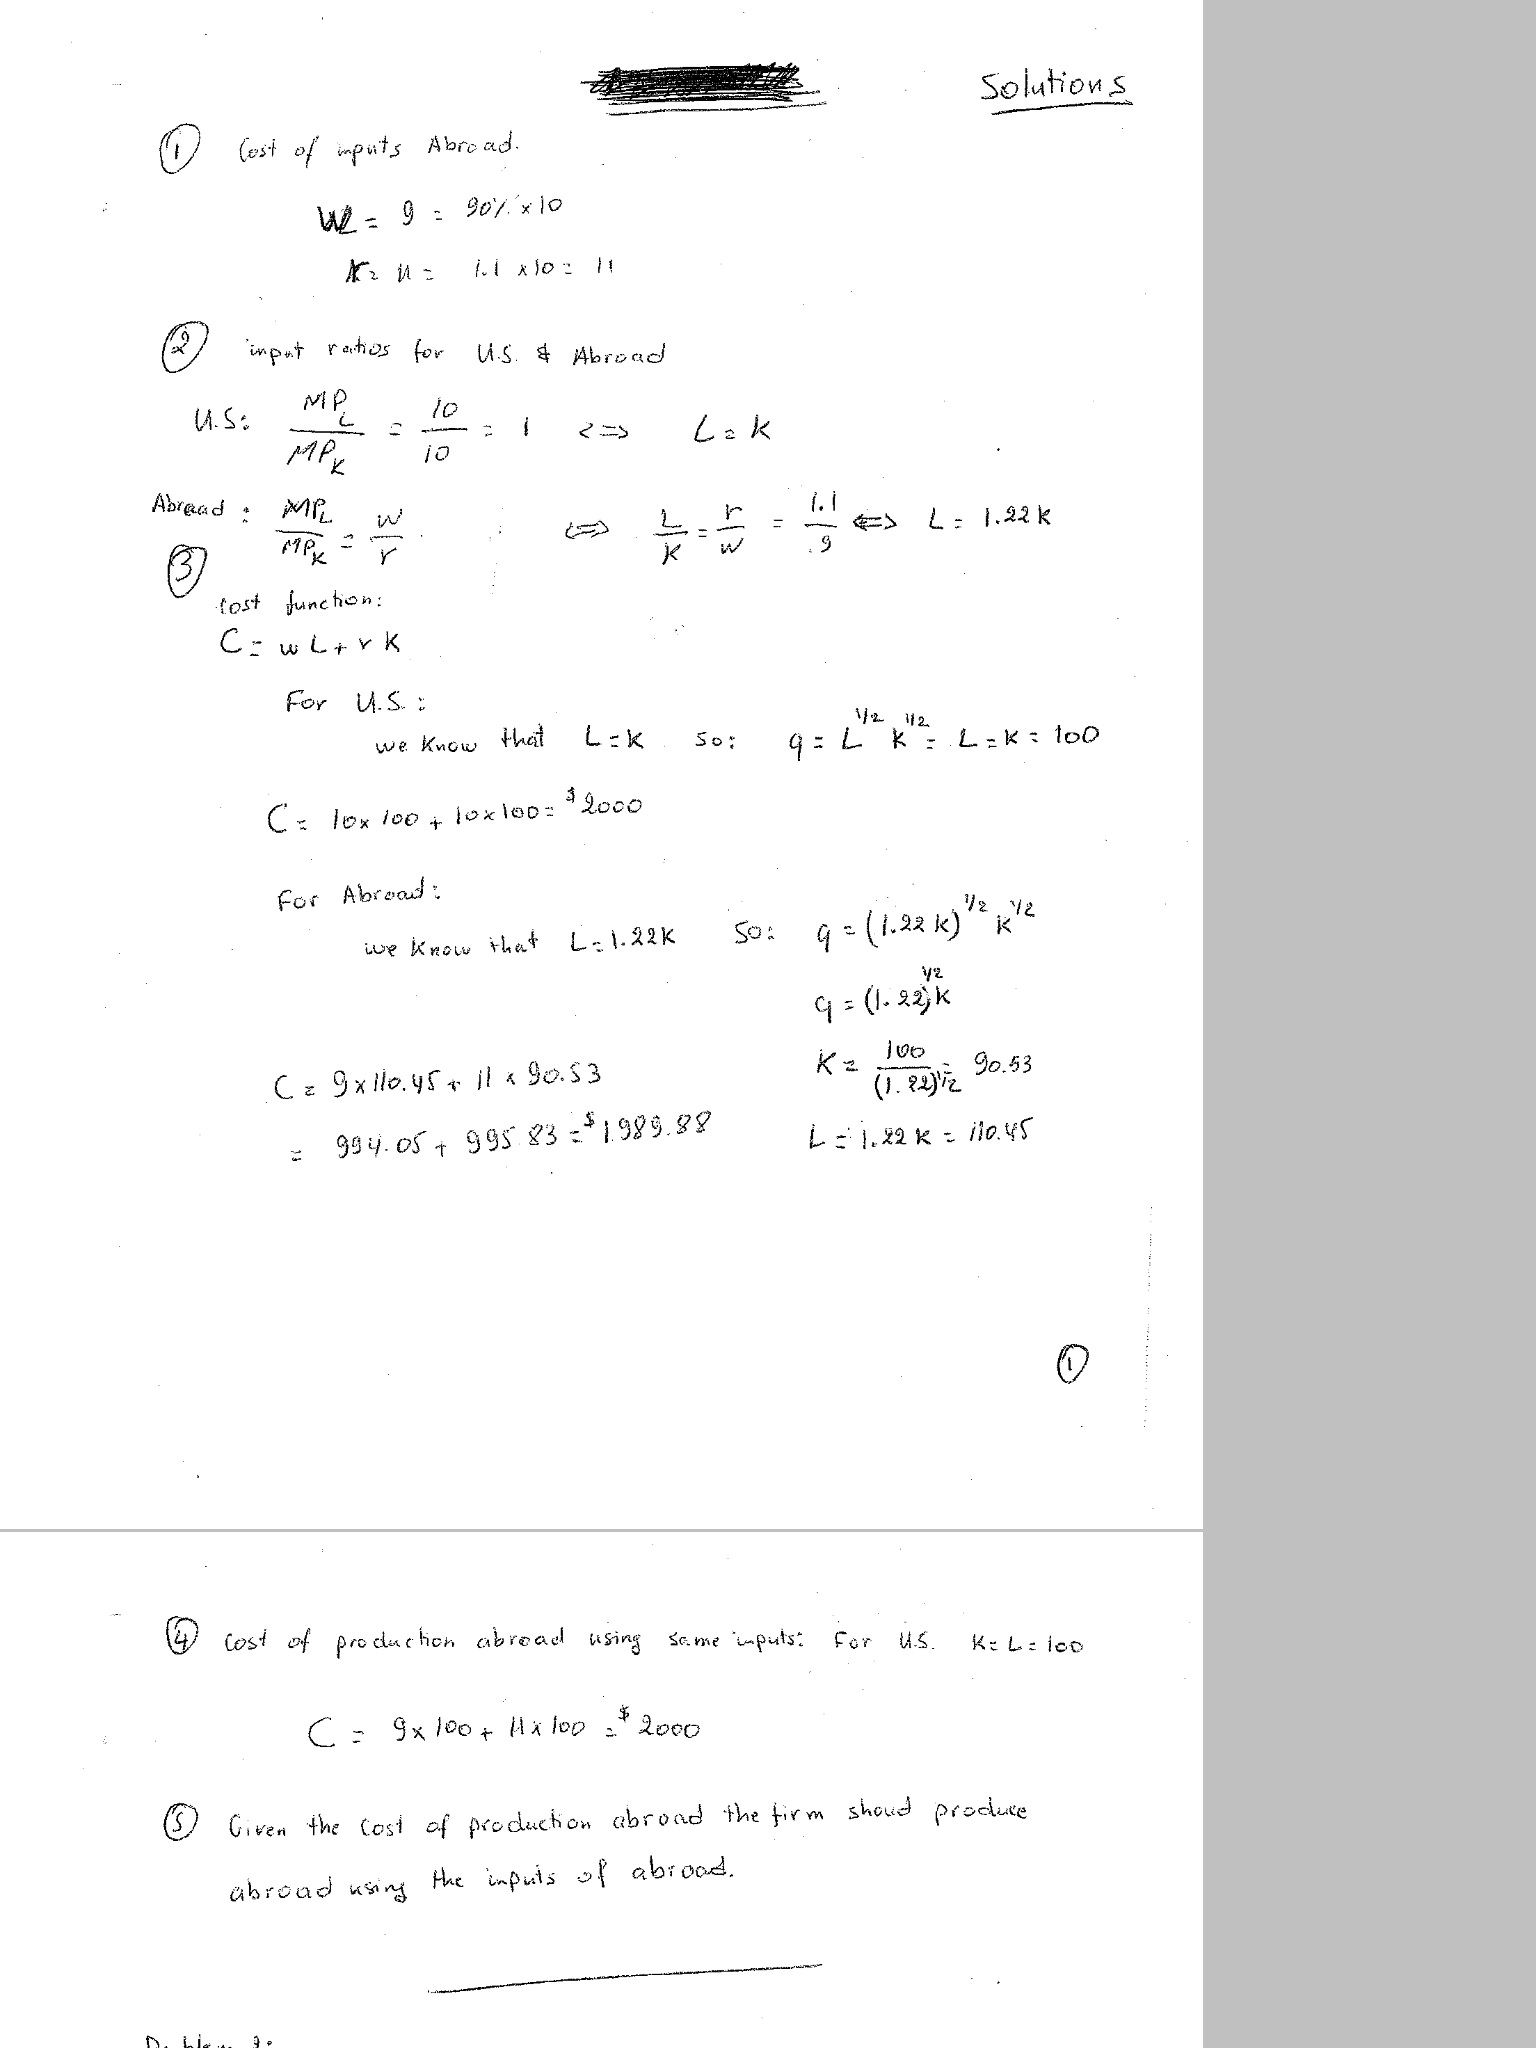 Solutions
① Cost of inputs Abroad.
W = 9 = 90% x 10
r = 11 = 1.1 x 10 = 11
② input ratios for U.S. & Abroad
U.S: MP_L / MP_K = 10 / 10 = 1 <=> L = K
Abroad : MP_L / MP_K = w / r <=> L / K = r / w = 1.1 / .9 <=> L = 1.22 K
③
Cost function:
C = wL + rK
For U.S. :
we know that L = K so: q = L^1/2 K^1/2 = L = K = 100
C = 10 x 100 + 10 x 100 = $2000
For Abroad :
we know that L = 1.22K so: q = (1.22 K)^1/2 K^1/2
q = (1.22)^1/2 K
K = 100 / (1.22)^1/2 = 90.53
C = 9 x 110.45 + 11 x 90.53
L = 1.22 K = 110.45
= 994.05 + 995.83 = $1989.88
①
④ Cost of production abroad using same inputs: For U.S. K = L = 100
C = 9 x 100 + 11 x 100 = $2000
⑤ Given the cost of production abroad the firm shoud produce
abroad using the inputs of abroad.